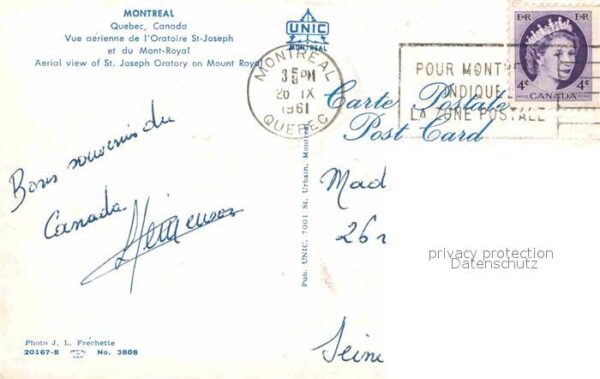 MONTREAL
Quebec, Canada
Vue aérienne de l'Oratoire St-Joseph
et du Mont-Royal
Aerial view of St. Joseph Oratory on Mount Royal
UNIC
MONTREAL
MONTREAL
PM
26 IX
1961
QUEBEC
POUR MONTR
INDIQUE
LA ZONE POSTALE
E R
E R
4¢
CANADA
4¢
Carte Postale
Post Card
Bons souvenirs du
Canada
Pub. UNIC, 7001 St. Urbain, Montreal
Mad
26
Seine
privacy protection
Datenschutz
Photo J. L. Fréchette
20167-B
No. 3808